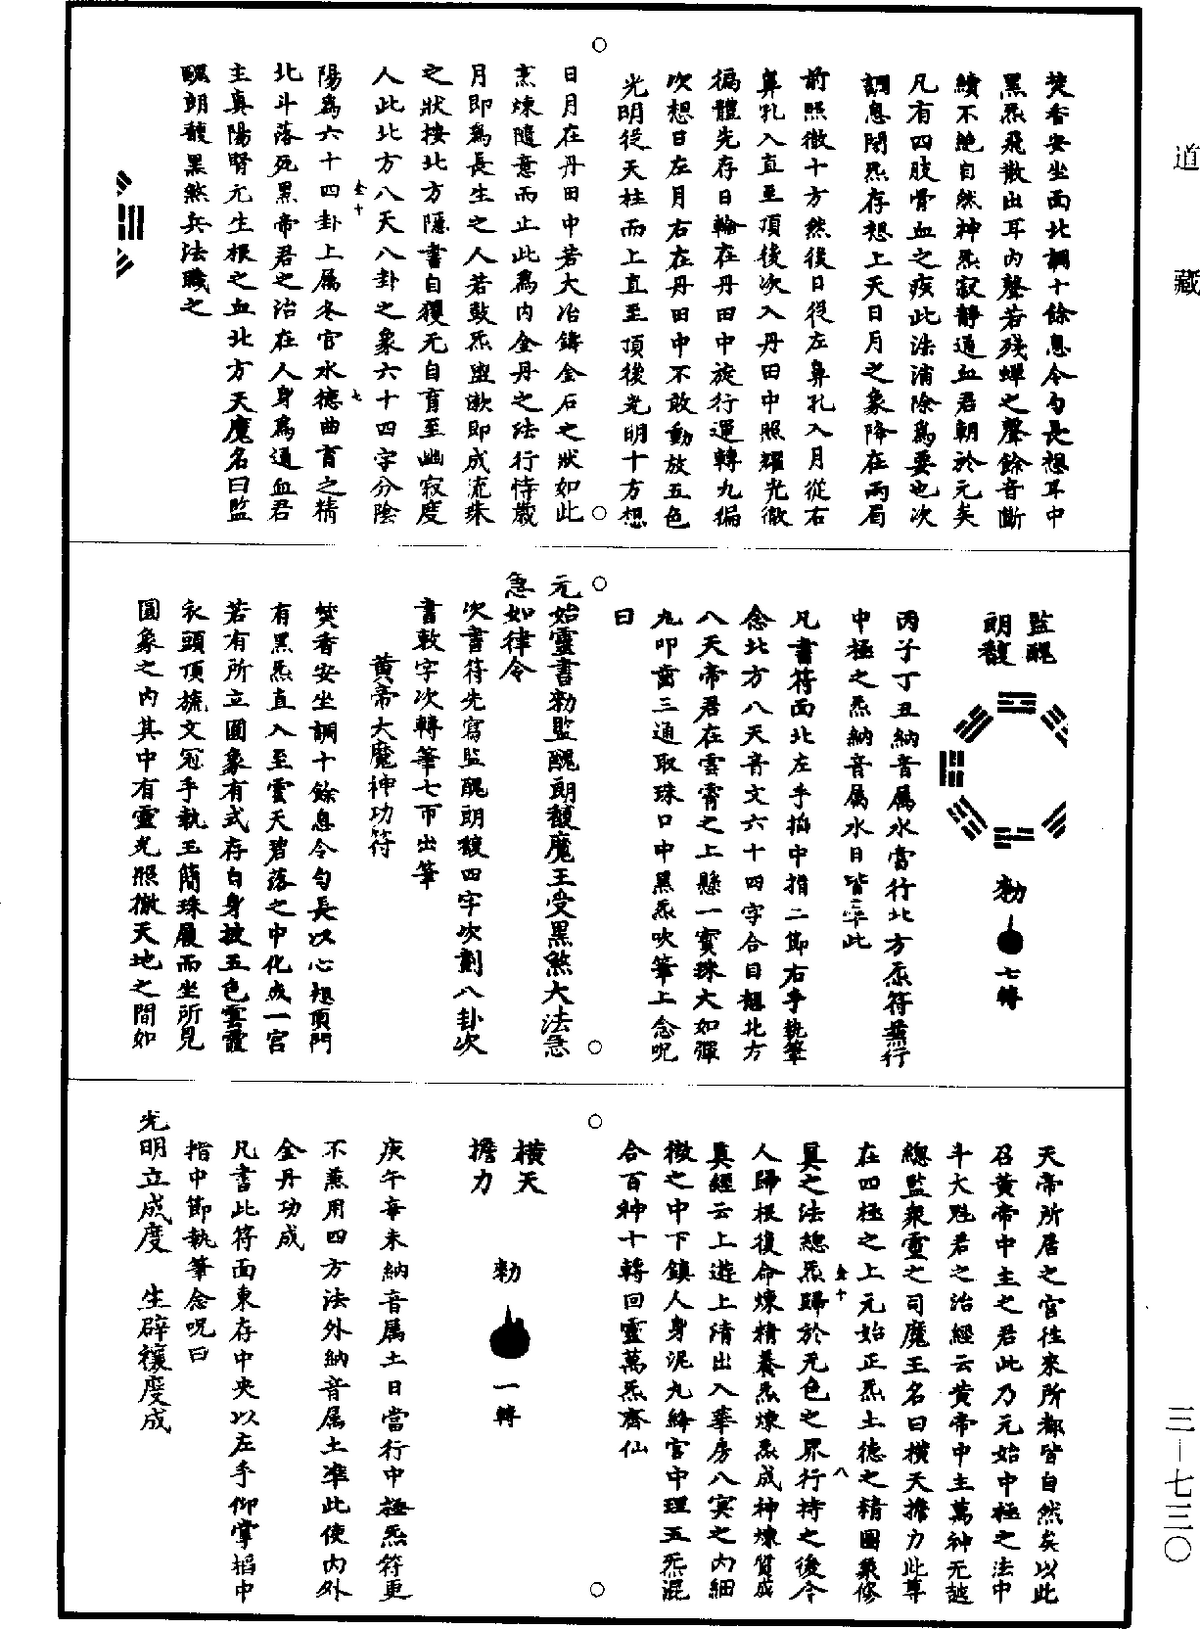 道藏
焚香安坐面北調十餘息令勻長想耳中
黑炁飛散出耳內聲若殘蟬之聲餘音斷
續不絕自然神炁寂靜通血君朝於元矣
凡有四肢骨血之疾此法浦除爲要也次
調息閉炁存想上天日月之象降在兩眉
前照徹十方然後日從左鼻孔入月從右
鼻孔入直至頂後次入丹田中照耀光徹
徧體先存日輪在丹田中旋行運轉九徧
次想日左月右在丹田中不敢動放五色
光明從天柱而上直至頂後光明十方想
日月在丹田中若大冶鑄金石之狀如此
烹煉隨意而止此爲內金丹之法行持嚴
月即爲長生之人若鼓炁盥漱即成流珠
之狀按北方隱書自玃无自育至幽寂度
人此北方八天八卦之象六十四字分陰
陽爲六十四卦上屬冬官水德曲育之精
北斗落死黑帝君之治在人身爲通血君
主真陽腎元生根之血北方天魔名曰監
醜朗馥黑煞兵法職之
監醜
朗馥
勑
七轉
丙子丁丑納音屬水當行北方炁符兼行
中極之炁納音屬水日皆準此
凡書符面北左手掐中指二節右手執筆
念北方八天音文六十四字合目想北方
八天帝君在雲霄之上懸一寶珠大如彈
丸叩齒三通取珠口中黑炁吹筆上念呪
曰
元始靈書勑監醜朗馥魔王受黑煞大法急
急如律令
次書符先寫監醜朗馥四字次劃八卦次
書敕字次轉筆七帀出筆
黃帝大魔神功符
焚香安坐調十餘息令勻長以心想頂門
有黑炁直入至雲天碧落之中化成一宮
若有所立圓象有式存自身披五色雲霞
衣頭頂旒文冠手執玉簡珠履而坐所見
圓象之內其中有靈光照徹天地之間如
天帝所居之宮往來所都皆自然矣以此
召黃帝中主之君此乃元始中極之法中
斗大魁君之治經云黃帝中主萬神无越
總監衆靈之司魔王名曰橫天擔力此尊
在四極之上元始正炁土德之精圓象修
真之法總炁歸於无色之界行持之後令
人歸根復命煉精養炁煉炁成神煉質成
真經云上遊上清出入華房八冥之內細
微之中下鎮人身泥丸絳宮中理五炁混
合百神十轉回靈萬炁齊仙
橫天
擔力
勑
一轉
庚午辛未納音屬土日當行中極炁符更
不兼用四方法外納音屬土準此使內外
金丹功成
凡書此符面東存中央以左手仰掌掐中
指中節執筆念呪曰
光明立成度　生辟禳度成
三—七三〇